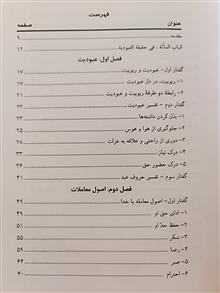 فهرست
عنوان صفحه
مقدمه ۹
الباب المأئة ؛ فی حقیقة العبودیة ۱۲
فصل اول: عبودیت
گفتار اول- عبودیت و ربوبیت ۱۷
۱- ربوبیت، در دل عبودیت ۱۷
۲- رابطهٔ دو طرفهٔ ربوبیت و عبودیت ۲۱
گفتار دوم - تفسیر عبودیت ۲۳
۱- بذل کردن داشته‌ها ۲۳
۲- جلوگیری از هوا و هوس ۲۵
۳- دوری از راحتی و علاقه به عزلت ۲۸
۴- درک نیاز
۵- درک حضور حق
گفتار سوم - تفسیر حروف عبد ۴۱
فصل دوم: اصول معاملات
گفتار اول- اصول معامله با خدا ۴۹
۱- ادای حق او ۴۹
۲- حفظ حدّ او ۵۱
۳- شکر ۵۵
۴- رضا ۵۹
۵- صبر ۶۴
۶- احترام ۷۰